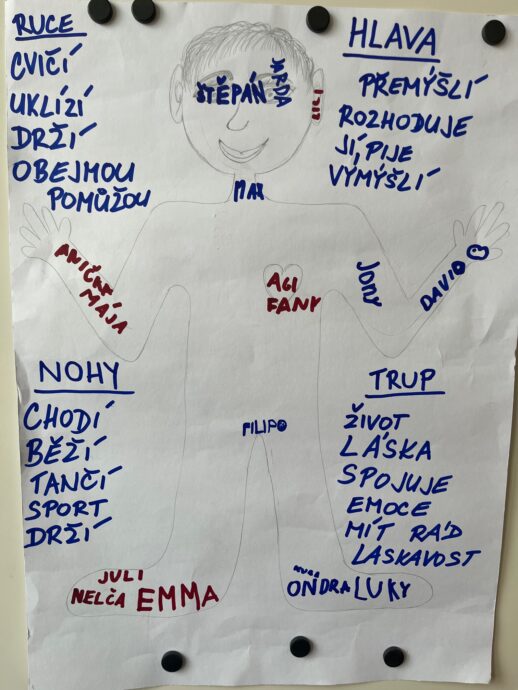 RUCE
CVIČÍ
UKLÍZÍ
DRŽÍ
OBEJMOU
POMŮŽOU
HLAVA
PŘEMÝŠLÍ
ROZHODUJE
JÍ, PIJE
VYMÝŠLÍ
ŠTĚPÁN
LILI
MAX
ANIČKA
MÁJA
AGI
FANY
JONY
DAVID
NOHY
CHODÍ
BĚŽÍ
TANČÍ
SPORT
DRŽÍ
FILIP
TRUP
ŽIVOT
LÁSKA
SPOJUJE
EMOCE
MÍT RÁD
LASKAVOST
JULI
NELČA EMMA
ONDRA LUKY